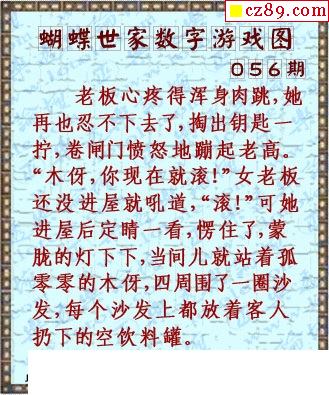 cz89.com
蝴蝶世家数字游戏图
056期
老板心疼得浑身肉跳,她
再也忍不下去了,掏出钥匙一
拧,卷闸门愤怒地蹦起老高。
“木伢,你现在就滚!”女老板
还没进屋就吼道,“滚!”可她
进屋后定睛一看,愣住了,蒙
胧的灯下下,当间儿就站着孤
零零的木伢,四周围了一圈沙
发,每个沙发上都放着客人
扔下的空饮料罐。